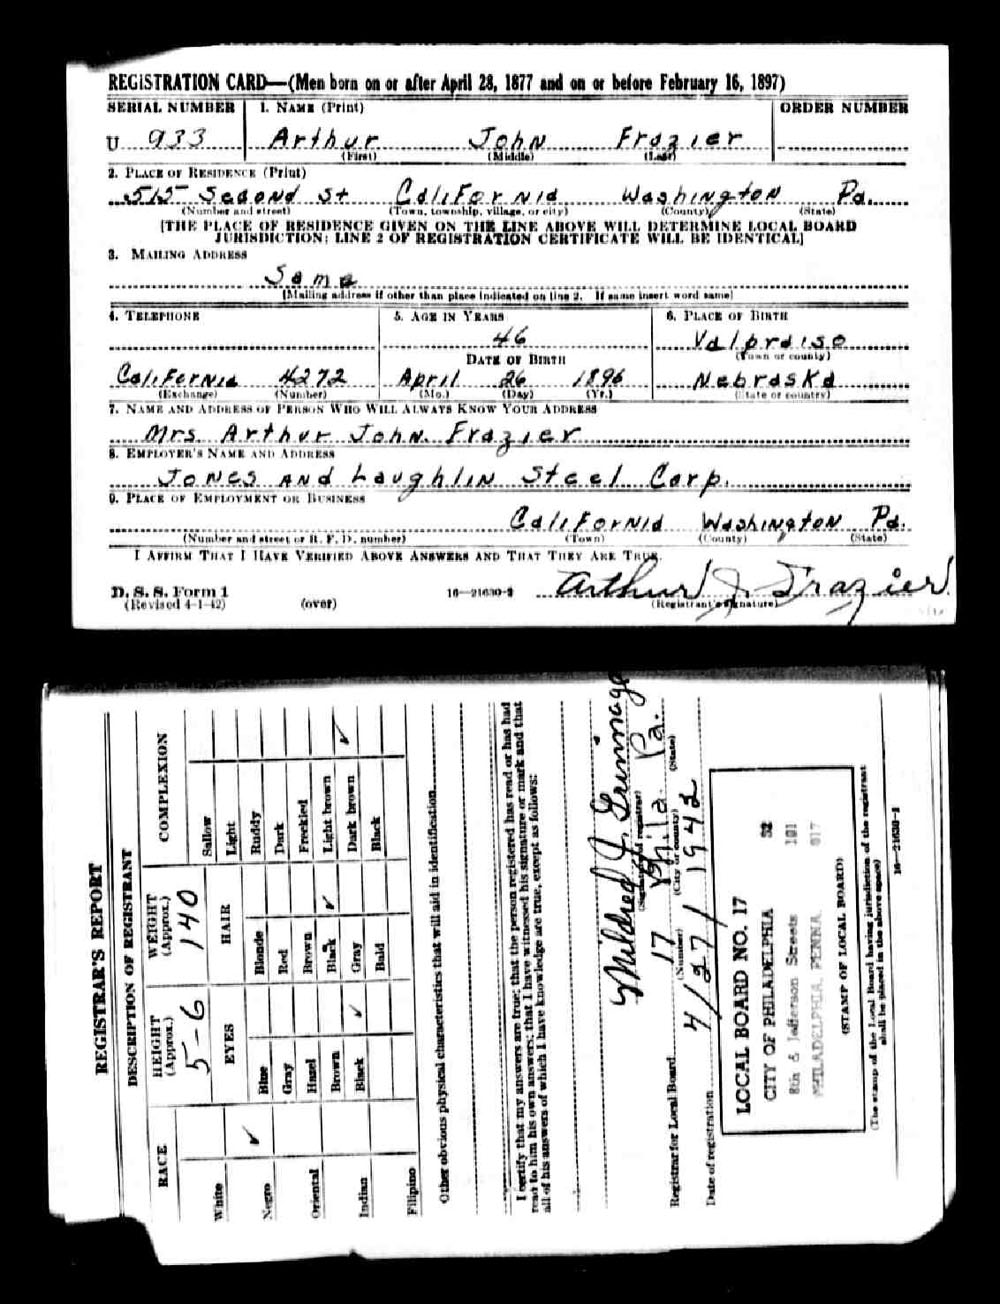 REGISTRATION CARD—(Men born on or after April 28, 1877 and on or before February 16, 1897)
SERIAL NUMBER 1. NAME (Print) ORDER NUMBER
U 933 Arthur John Frazier
(First) (Middle) (Last)
2. PLACE OF RESIDENCE (Print)
515 Second St California Washington Pa.
(Number and street) (Town, township, village, or city) (County) (State)
[THE PLACE OF RESIDENCE GIVEN ON THE LINE ABOVE WILL DETERMINE LOCAL BOARD
JURISDICTION; LINE 2 OF REGISTRATION CERTIFICATE WILL BE IDENTICAL]
3. MAILING ADDRESS
Same
[Mailing address if other than place indicated on line 2. If same insert word same]
4. TELEPHONE 5. AGE IN YEARS 6. PLACE OF BIRTH
46 Valpraiso
DATE OF BIRTH (Town or county)
California 4272 April 26 1896 Nebraska
(Exchange) (Number) (Mo.) (Day) (Yr.) (State or country)
7. NAME AND ADDRESS OF PERSON WHO WILL ALWAYS KNOW YOUR ADDRESS
Mrs. Arthur John Frazier
8. EMPLOYER'S NAME AND ADDRESS
Jones and Laughlin Steel Corp.
9. PLACE OF EMPLOYMENT OR BUSINESS
California Washington Pa.
(Number and street or R. F. D. number) (Town) (County) (State)
I AFFIRM THAT I HAVE VERIFIED ABOVE ANSWERS AND THAT THEY ARE TRUE.
D. S. S. Form 1
(Revised 4-1-42) (over) 16—21630-2 Arthur J. Frazier
(Registrant's signature)
REGISTRAR'S REPORT
DESCRIPTION OF REGISTRANT
RACE HEIGHT (Approx.) WEIGHT (Approx.) COMPLEXION
5-6 140
EYES HAIR
White
Negro ✓
Oriental
Indian
Filipino
Blue
Gray
Hazel
Brown
Black ✓
Blonde
Red
Brown
Black ✓
Gray
Bald
Sallow
Light
Ruddy
Dark
Freckled
Light brown
Dark brown ✓
Black
Other obvious physical characteristics that will aid in identification
I certify that my answers are true; that the person registered has read or has had
read to him his own answers; that I have witnessed his signature or mark and that
all of his answers of which I have knowledge are true, except as follows:
Mildred J. Grimmage
(Signature of registrar)
Registrar for Local Board 17 Phila Pa.
(Number) (City or county) (State)
Date of registration 4/27/1942
LOCAL BOARD NO. 17
CITY OF PHILADELPHIA 32
8th & Jefferson Streets 101
PHILADELPHIA, PENNA. 017
(STAMP OF LOCAL BOARD)
(The stamp of the Local Board having jurisdiction of the registrant
shall be placed in the above space)
16—21630-1